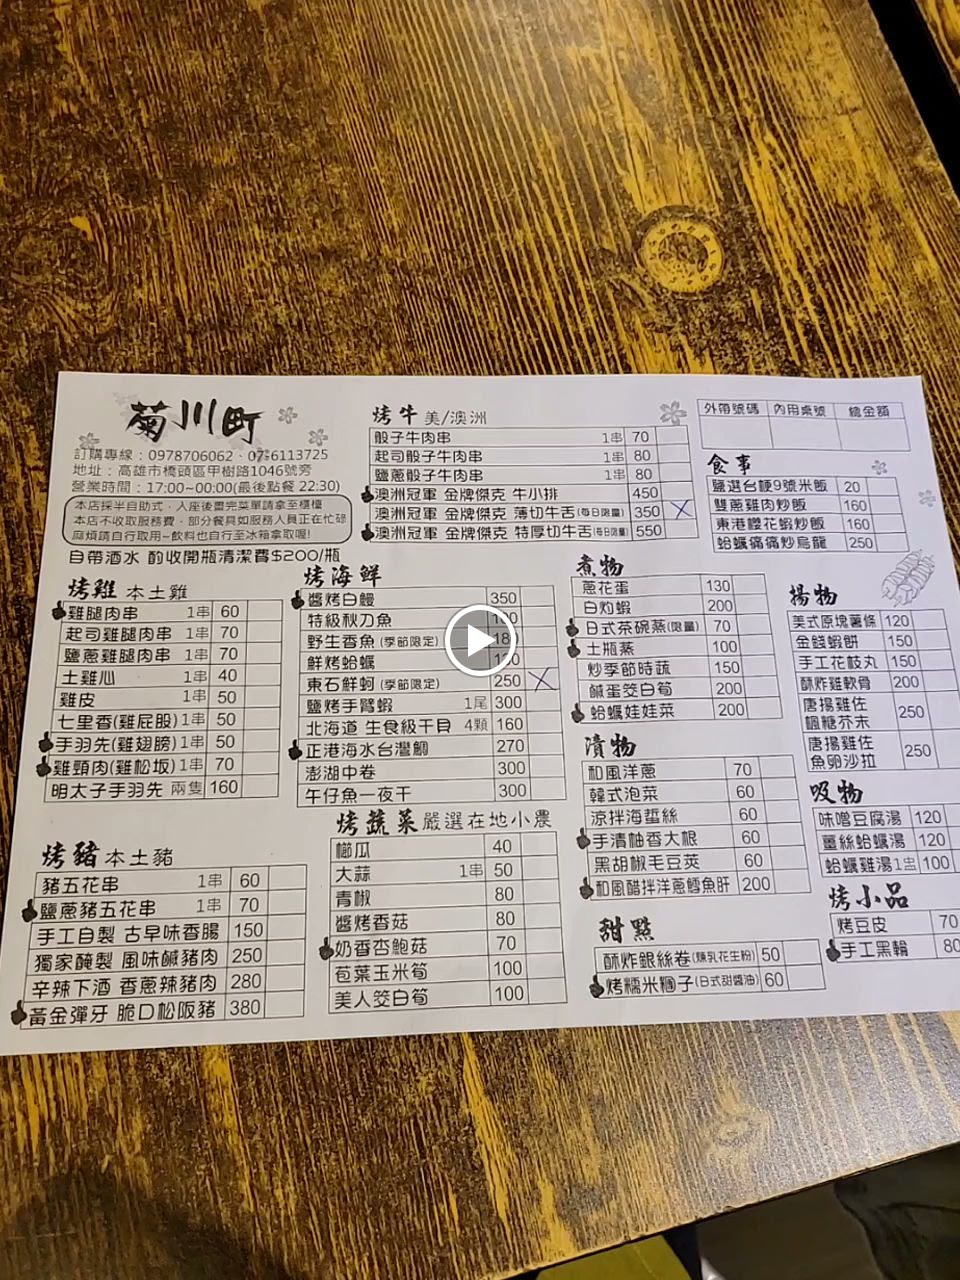 菊川町
訂購專線：0978706062、07-6113725
地址：高雄市橋頭區甲樹路1046號旁
營業時間：17:00~00:00(最後點餐 22:30)
本店採半自助式，入座後畫完菜單請拿至櫃檯
本店不收取服務費，部分餐具如服務人員正在忙碌
麻煩請自行取用~飲料也自行至冰箱拿取喔!
自帶酒水 酌收開瓶清潔費$200/瓶
烤雞 本土雞
雞腿肉串 1串 60
起司雞腿肉串 1串 70
鹽蔥雞腿肉串 1串 70
土雞心 1串 40
雞皮 1串 50
七里香(雞屁股) 1串 50
手羽先(雞翅膀) 1串 50
雞頸肉(雞松坂) 1串 70
明太子手羽先 兩隻 160
烤豬 本土豬
豬五花串 1串 60
鹽蔥豬五花串 1串 70
手工自製 古早味香腸 150
獨家醃製 風味鹹豬肉 250
辛辣下酒 香蔥辣豬肉 280
黃金彈牙 脆口松阪豬 380
烤牛 美/澳洲
骰子牛肉串 1串 70
起司骰子牛肉串 1串 80
鹽蔥骰子牛肉串 1串 80
澳洲冠軍 金牌傑克 牛小排 450
澳洲冠軍 金牌傑克 薄切牛舌(每日限量) 350
澳洲冠軍 金牌傑克 特厚切牛舌(每日限量) 550
烤海鮮
醬烤白鰻 350
特級秋刀魚
野生香魚(季節限定)
鮮烤蛤蠣
東石鮮蚵(季節限定) 250
鹽烤手臂蝦 1尾 300
北海道 生食級干貝 4顆 160
正港海水台灣鯛 270
澎湖中卷 300
午仔魚一夜干 300
烤蔬菜 嚴選在地小農
櫛瓜 40
大蒜 1串 50
青椒 80
醬烤香菇 80
奶香杏鮑菇 70
苞葉玉米筍 100
美人筊白筍 100
煮物
蔥花蛋 130
白灼蝦 200
日式茶碗蒸(限量) 70
土瓶蒸 100
炒季節時蔬 150
鹹蛋筊白筍 200
蛤蠣娃娃菜 200
漬物
和風洋蔥 70
韓式泡菜 60
涼拌海蜇絲 60
手漬柚香大根 60
黑胡椒毛豆莢 60
和風醋拌洋蔥鱈魚肝 200
甜點
酥炸銀絲卷(煉乳花生粉) 50
烤糯米糰子(日式甜醬油) 60
外帶號碼 內用桌號 總金額
食事
鹽選台梗9號米飯 20
雙蔥雞肉炒飯 160
東港櫻花蝦炒飯 160
蛤蠣痛痛炒烏龍 250
揚物
美式原塊薯條 120
金錢蝦餅 150
手工花枝丸 150
酥炸雞軟骨 200
唐揚雞佐
楓糖芥末 250
唐揚雞佐
魚卵沙拉 250
吸物
味噌豆腐湯 120
薑絲蛤蠣湯 120
蛤蠣雞湯 1盅 100
烤小品
烤豆皮 70
手工黑輪 80